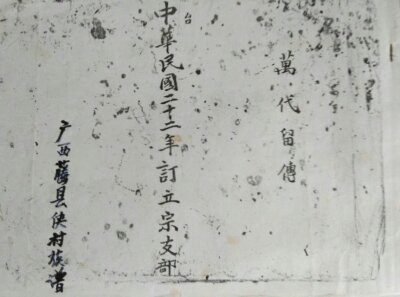 萬代留傳
台
中華民國二十二年訂立宗支部
广西藤县侠村族曾